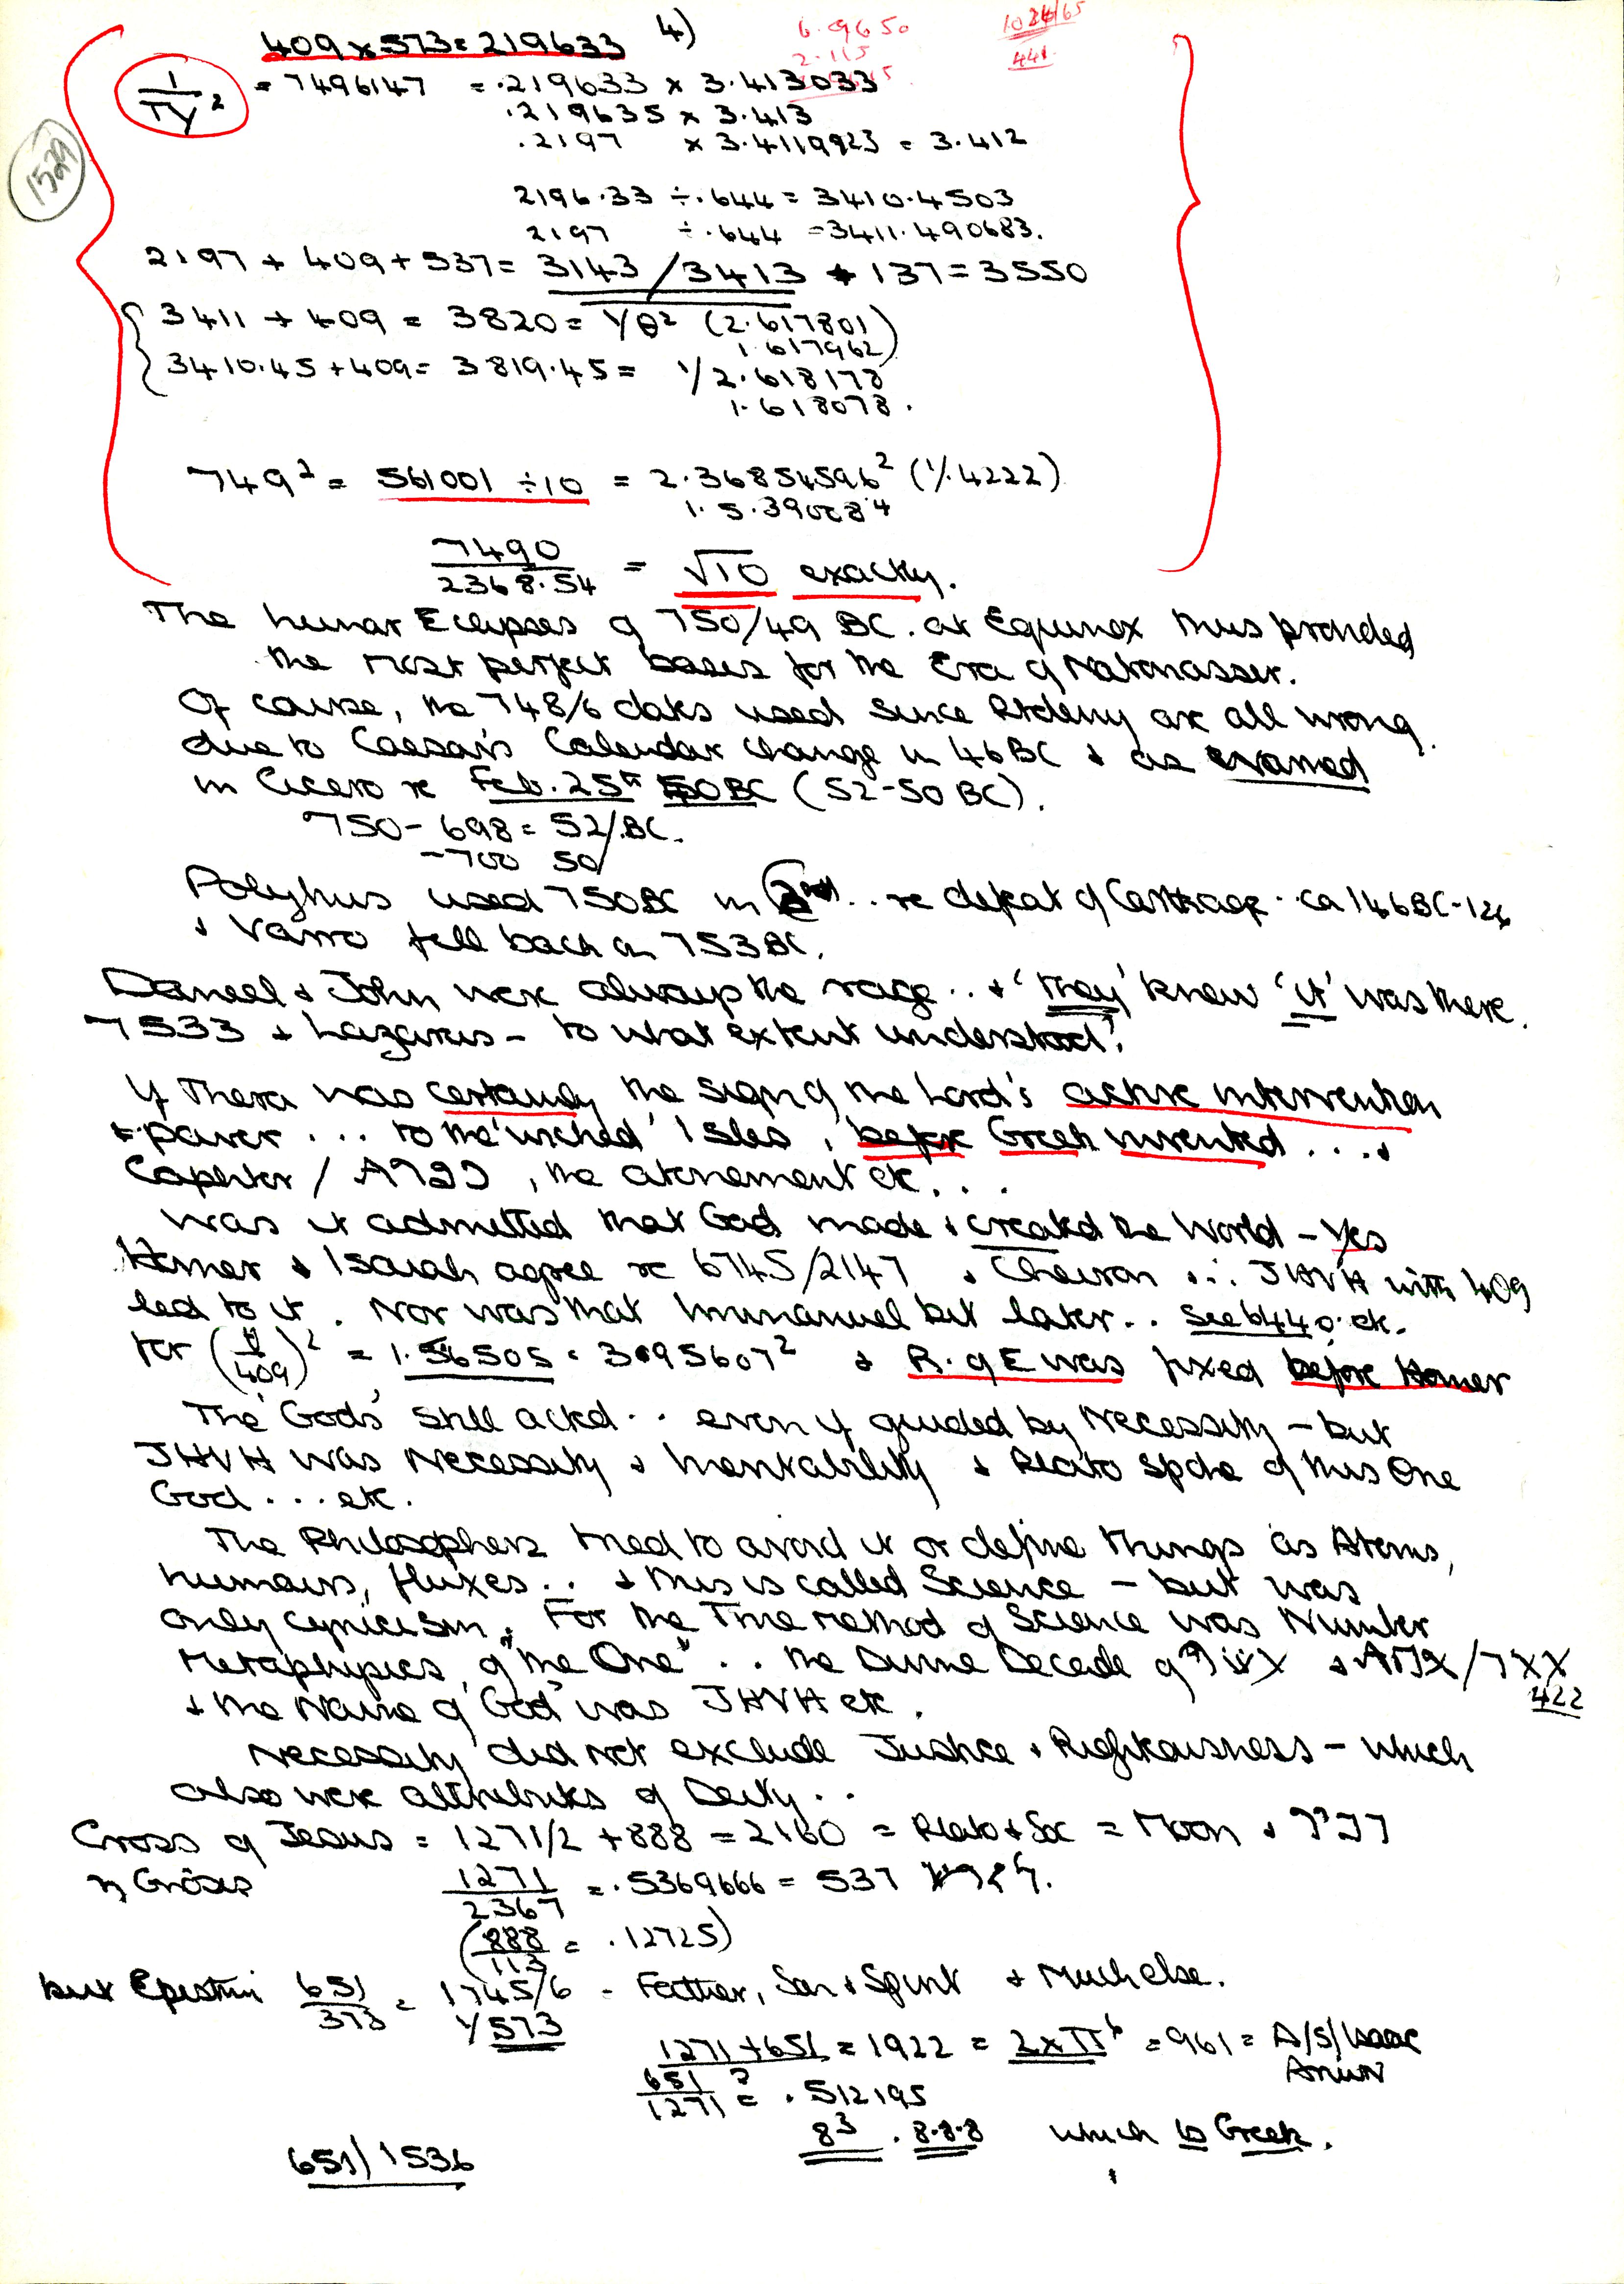 4)
6.9650
1024/65
409 x 573 = 219633
2.115
441
1/TY² = 7496147 = .219633 x 3.413033
.219635 x 3.413
.2197 x 3.4119923 = 3.412
1529
2196.33 ÷ .644 = 3410.4503
2197 ÷ .644 = 3411.490683.
2197 + 409 + 537 = 3143 / 3413 + 137 = 3550
3411 + 409 = 3820 = 1/θ² (2.617801)
1.617962)
3410.45 + 409 = 3819.45 = 1/2.618178
1.618078.
749² = 561001 ÷ 10 = 2.36854596² (1/.4222)
7490/2368.54 = √10 exactly.
The Lunar Eclipses of 750/49 BC. at Equinox thus provided
the most perfect bases for the Era of Nabonasser.
Of course, the 748/6 dates used since Ptolemy are all wrong
due to Caesar's Calendar change in 46BC + as
in Cicero re Feb. 25th 50BC (52-50 BC).
750 - 698 = 52/.BC.
-700 50/
Polybius used 750BC in 2nd .. re defeat of Carthage. ca 146BC-
+ Varro fell back on 753BC.
Daniel + John were always the rage .. + 'they' knew 'it' was there.
7533 + Lazarus - to what extent understood?
If Thera was certainly the sign of the Lord's active intervention
+ power ... to the 'wicked' Isles, before Greek invented ....+
/ , the atonement etc...
Was it admitted that God made + created the World - Yes
Homer + Isaiah agree re 6745/2147 + Cheiron .. JHVH with 409
led to it. Nor was that Immanuel but later.. see 6440. etc.
for ( /409)² = 1.56505 = + R. of E was fixed before Homer
The 'Gods' still acted .. even if guided by Necessity - but
JHVH was Necessity + Inevitability + Plato spoke of this One
God ... etc.
The Philosophers tried to avoid it or define things as Atoms,
humours, fluxes .. + this is called Science - but was
only cynicism. For the True method of Science was Number
Metaphysics, of "the One" .. the Divine Decade of
422
+ the Name of 'God' was JHVH etc.
Necessity did not exclude Justice + Righteousness - which
also were attributes of Deity..
Cross of Jesus = 1271/2 + 888 = 2160 = Plato + Soc = Moon +
1271/2367 = .5369666 = 537
(888/113 = .12725)
but 651/373 = 1745/6 - Father, Son + Spirit + Much else.
1/573
1271 + 651 = 1922 = 2 x π⁶ = 961 = A/S/Isaac
651/1271 = .512195
8³ . 8.8.8 which is Greek.
651) 1536